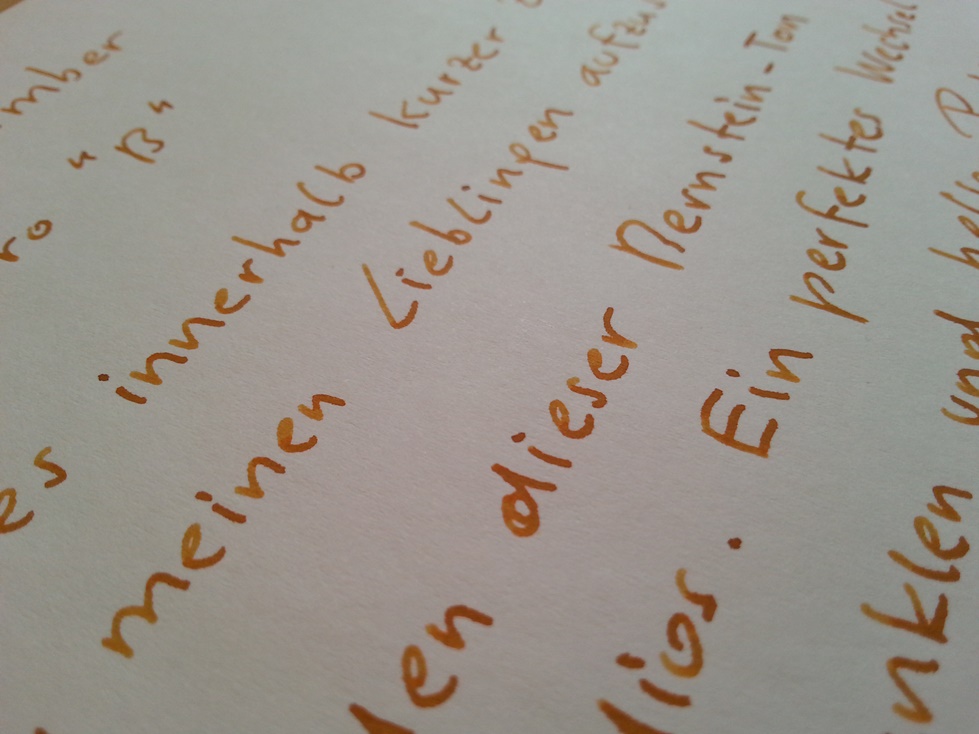 mber
ro "B"
es innerhalb kurzer
meinen Lieblingen aufzu
len dieser Bernstein-Ton
lios. Ein perfektes Wechsel
nklen und helle